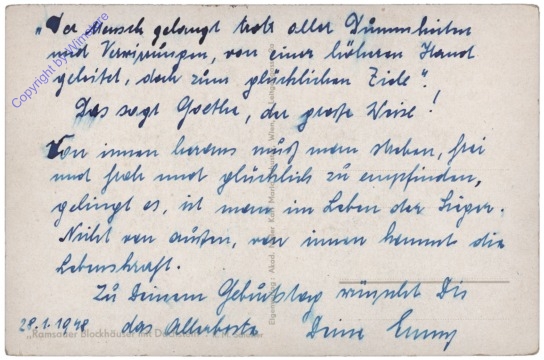 „Der Mensch gelangt trotz aller Dummheiten
und Verwirrungen, von einer höheren Hand
geleitet, doch zum glücklichen Ziele“.
Das sagt Goethe, der große Weise!
Von innen heraus muß man streben, frei
und froh und glücklich zu empfinden,
gelingt es, ist man im Leben der Sieger.
Nicht von außen, von innen kommt die
Lebenskraft.
Zu Deinem Geburtstag wünscht Dir
28.1.1948 das Allerbeste Deine Emmy
„Ramsauer Blockhäuser mit Dachstein
Copyright by